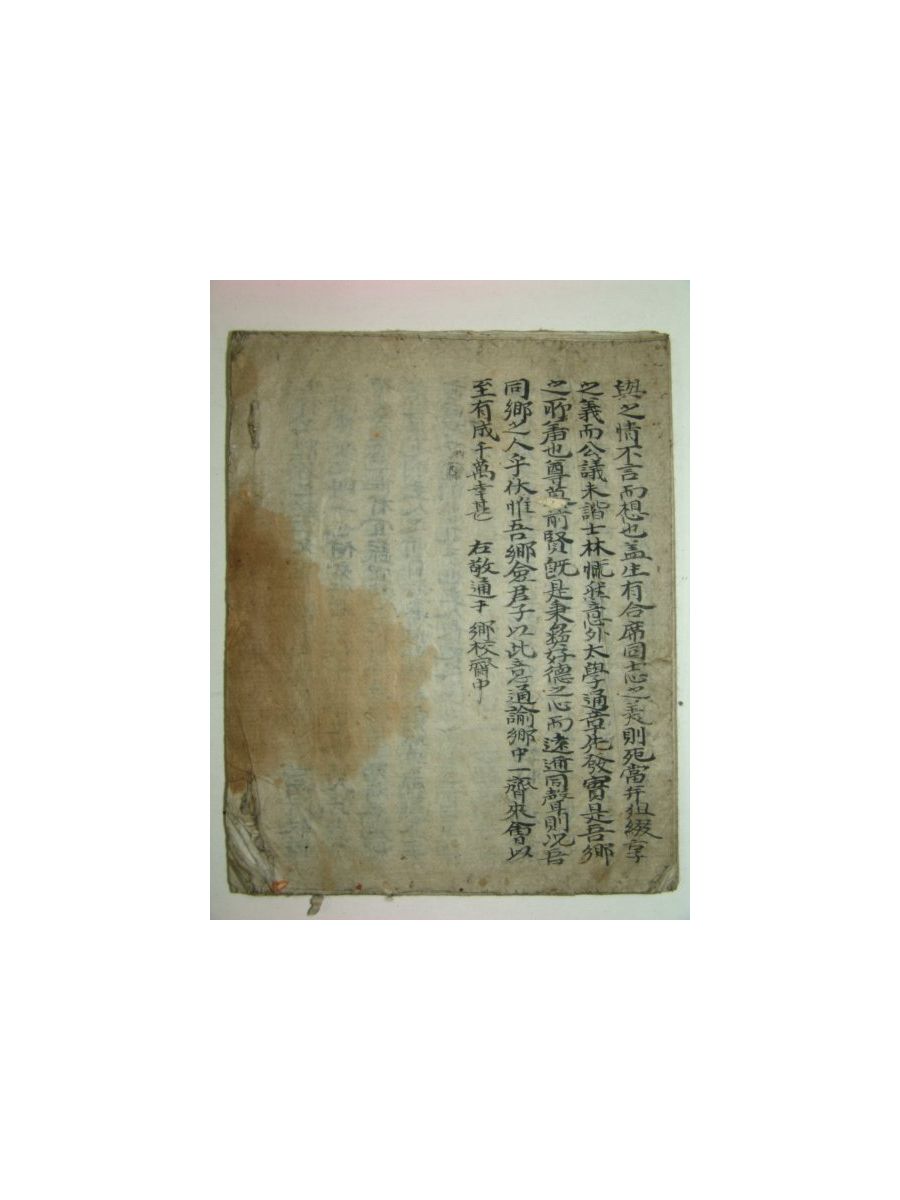 與之情不言而想也盖生有合席同志之義則死當幷俎綴享
之義而公議未諧士林慨然意外太學通章先發實是吾鄉
之所羞也尊慕前賢旣是秉彛好德之心而遠邇同聲則況吾
同鄉之人乎伏惟吾鄉僉君子以此意通諭鄉中一齊來會以
至有成千萬幸甚 右敬通于 鄉校齋中